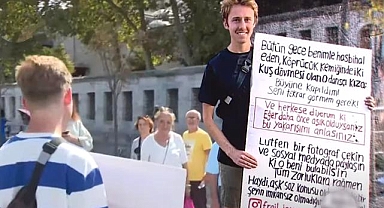 Bütün gece benimle hasbihal
eden, köprücük kemiğinde iki
Kuş dövmesi olan o dansçı kıza:
Büyüne kapıldım!
Seni tekrar görmem gerek!
Ve herkese duyurum ki
Eğer daha önce aşık olduysanız
bu yakarışımı anlarsınız:
Lütfen bir fotoğraf çekin
ve sosyal medyada paylaşın
ki o beni bulabilsin
Tüm zorluklara rağmen
Haydi, aşk söz konusu